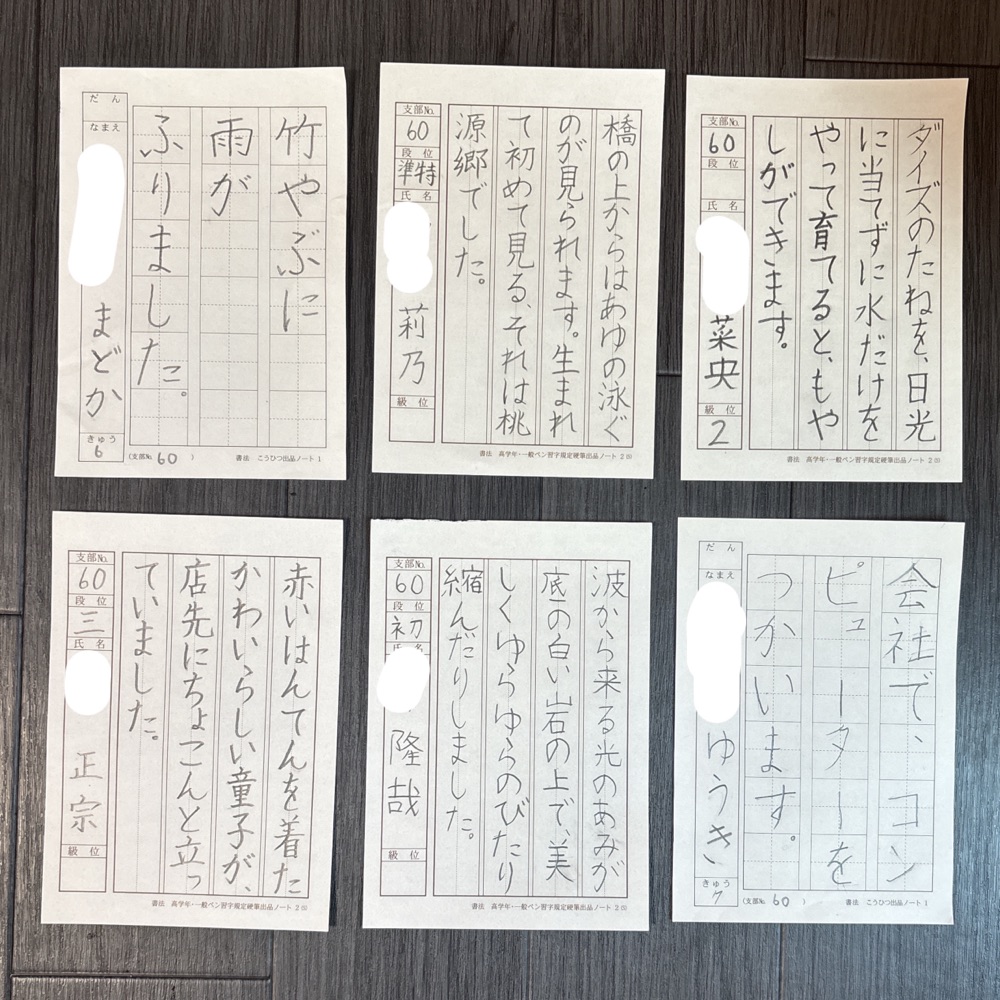 竹やぶに
雨が
ふりました。
だん
なまえ
まどか
きゅう
6
(支部№ 60 )
書法 こうひつ出品ノート 1
橋の上からはあゆの泳ぐ
のが見られます。生まれ
て初めて見る、それは桃
源郷でした。
支部№
60
段位
準特
氏名
莉乃
級位
書法 高学年・一般ペン習字規定硬筆出品ノート 2 ⑸
ダイズのたねを、日光
に当てずに水だけを
やって育てると、もや
しができます。
支部№
60
段位
氏名
菜央
級位
2
書法 高学年・一般ペン習字規定硬筆出品ノート 2 ⑸
赤いはんてんを着た
かわいらしい童子が、
店先にちょこんと立っ
ていました。
支部№
60
段位
三
氏名
正宗
級位
書法 高学年・一般ペン習字規定硬筆出品ノート 2 ⑸
波から来る光のあみが
底の白い岩の上で、美
しくゆらゆらのびたり
縮んだりしました。
支部№
60
段位
初
氏名
隆哉
級位
書法 高学年・一般ペン習字規定硬筆出品ノート 2 ⑸
会社で、コン
ピューターを
つかいます。
だん
なまえ
ゆうき
きゅう
7
(支部№ 60 )
書法 こうひつ出品ノート 1